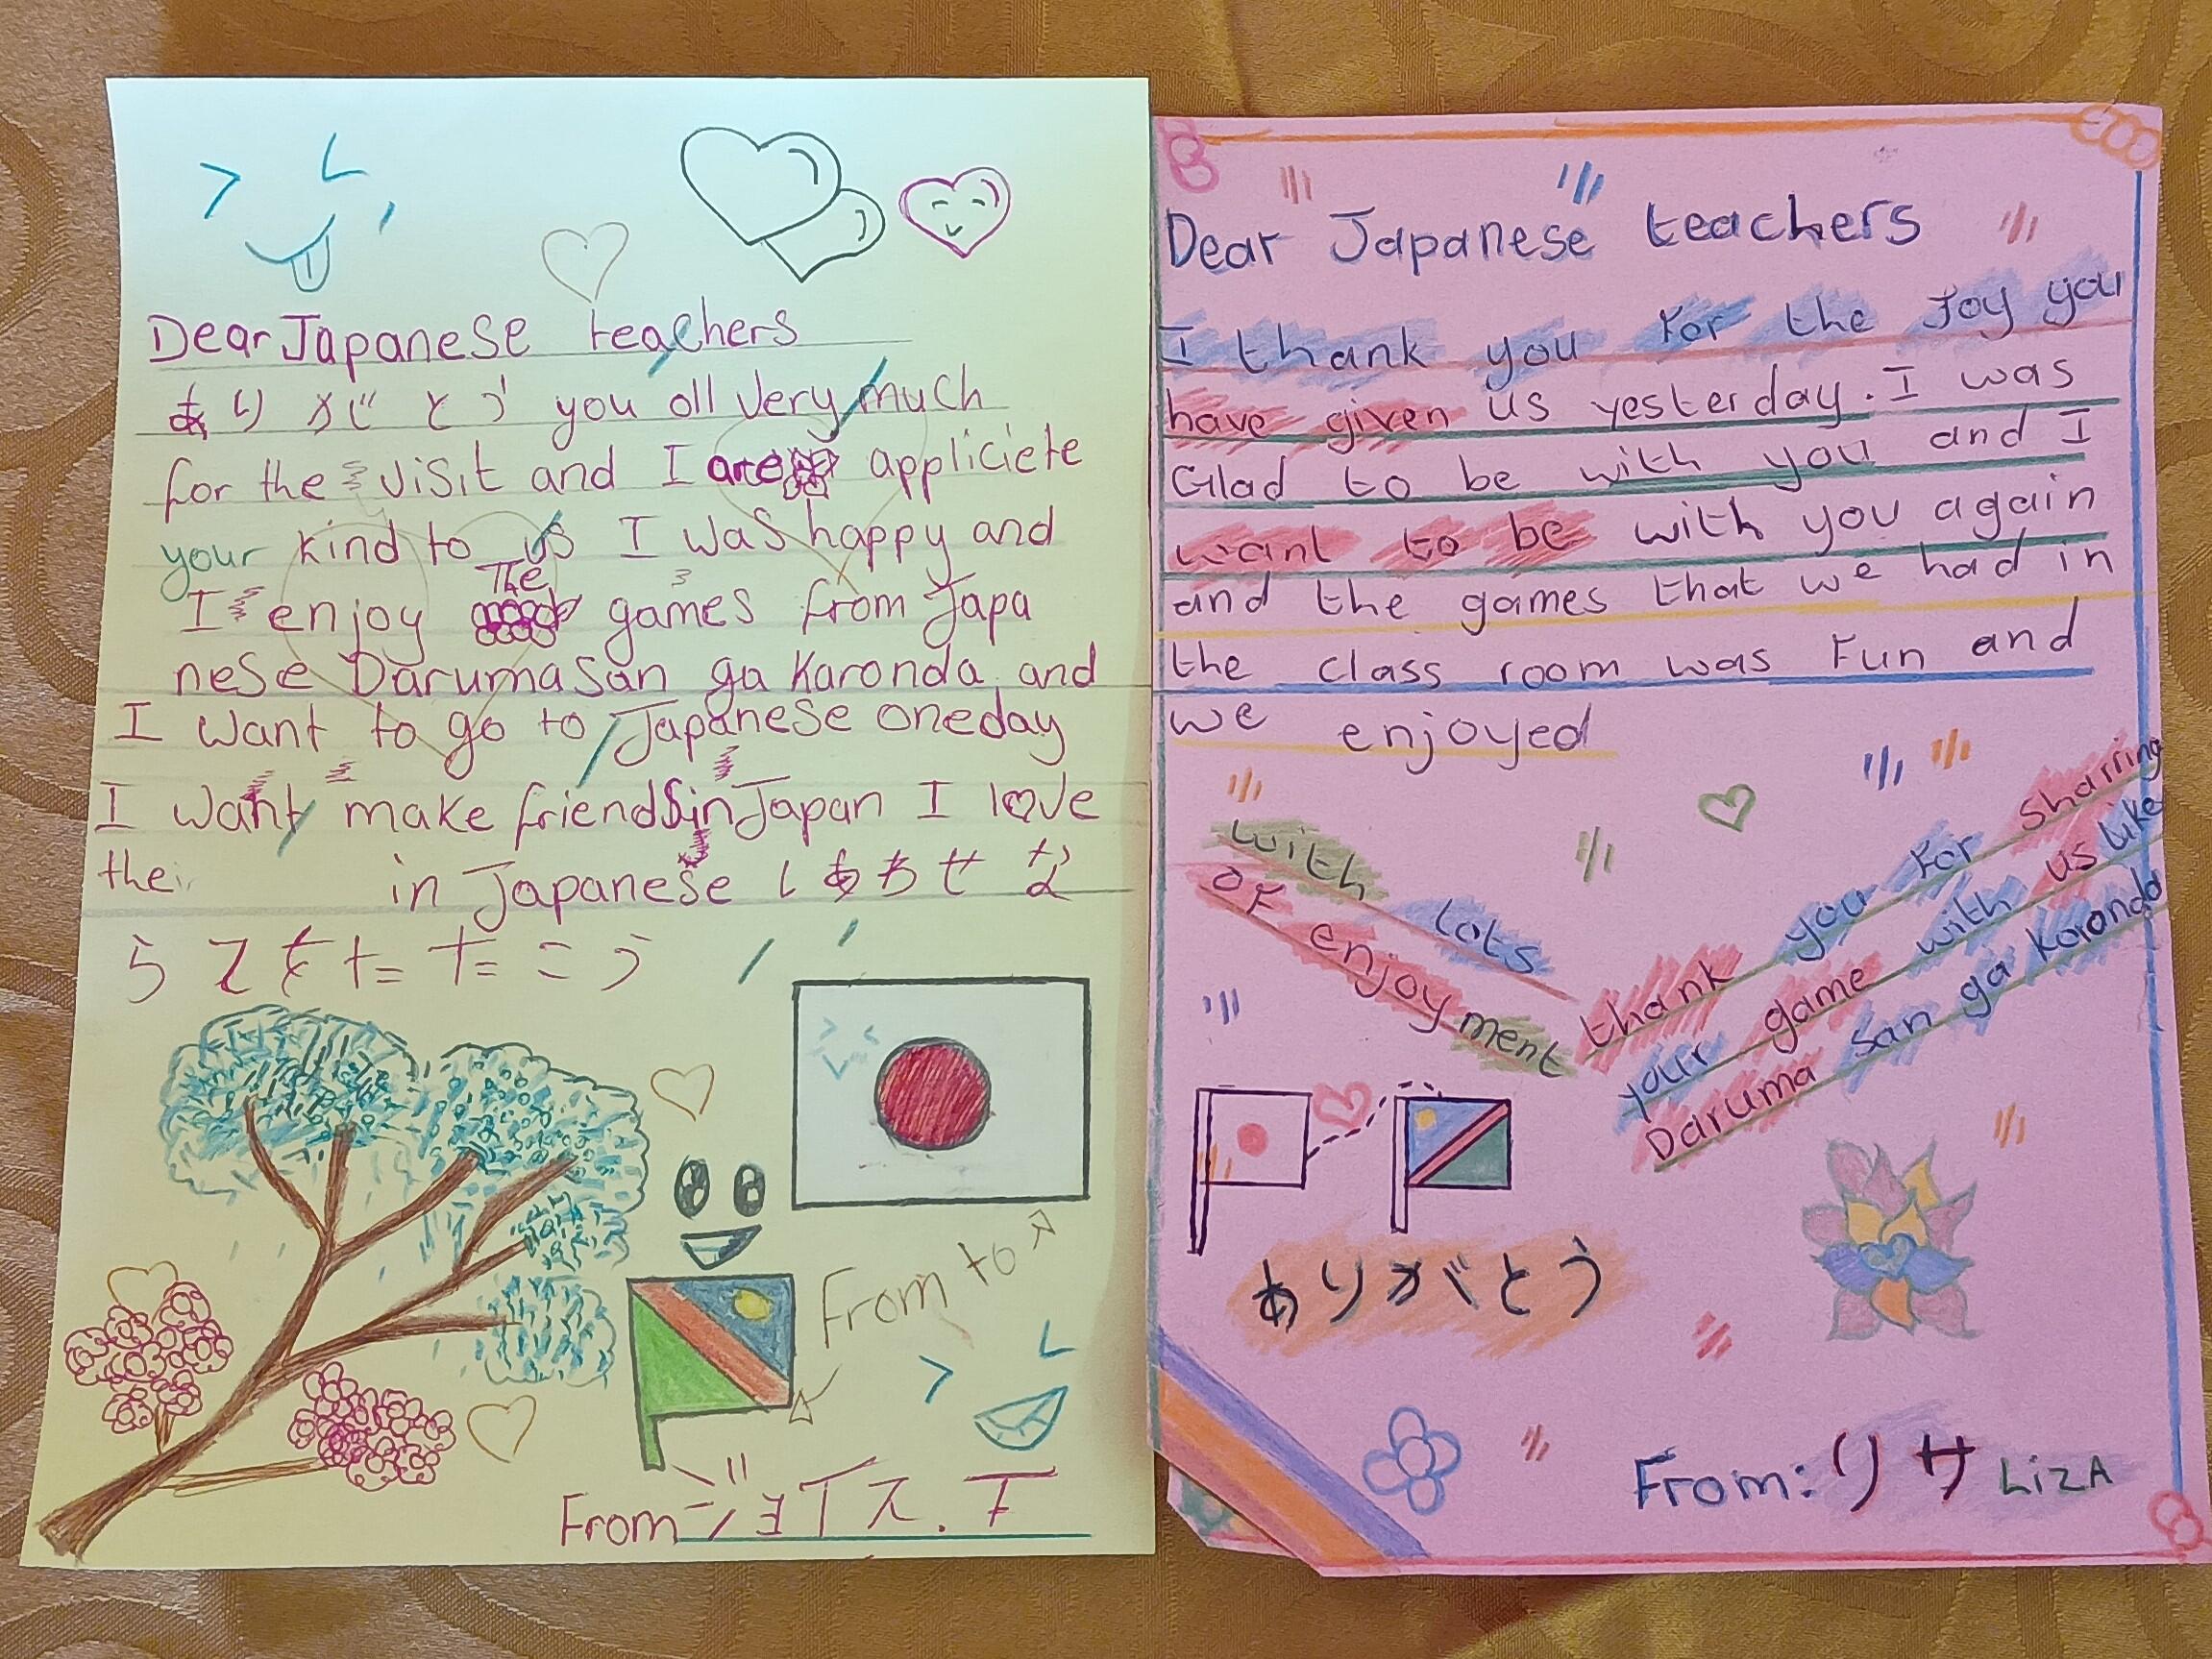 Dear Japanese teachers
ありがとう you oll very much
for the visit and I are appliciete
your kind to us I was happy and
I enjoy The games from Japa
nese Darumasan ga Karonda and
I want to go to Japanese oneday
I want make friends in Japan I love
the in Japanese しあわせな
らてをたたこう
From to
From ジョイス.テ
Dear Japanese teachers
I thank you for the Joy you
have given us yesterday. I was
Glad to be with you and I
want to be with you again
and the games that we had in
the class room was Fun and
we enjoyed
with lots
of enjoyment
thank you for Sharring
your game with us like
Daruma San ga Koronda
ありがとう
From: リサ LizA